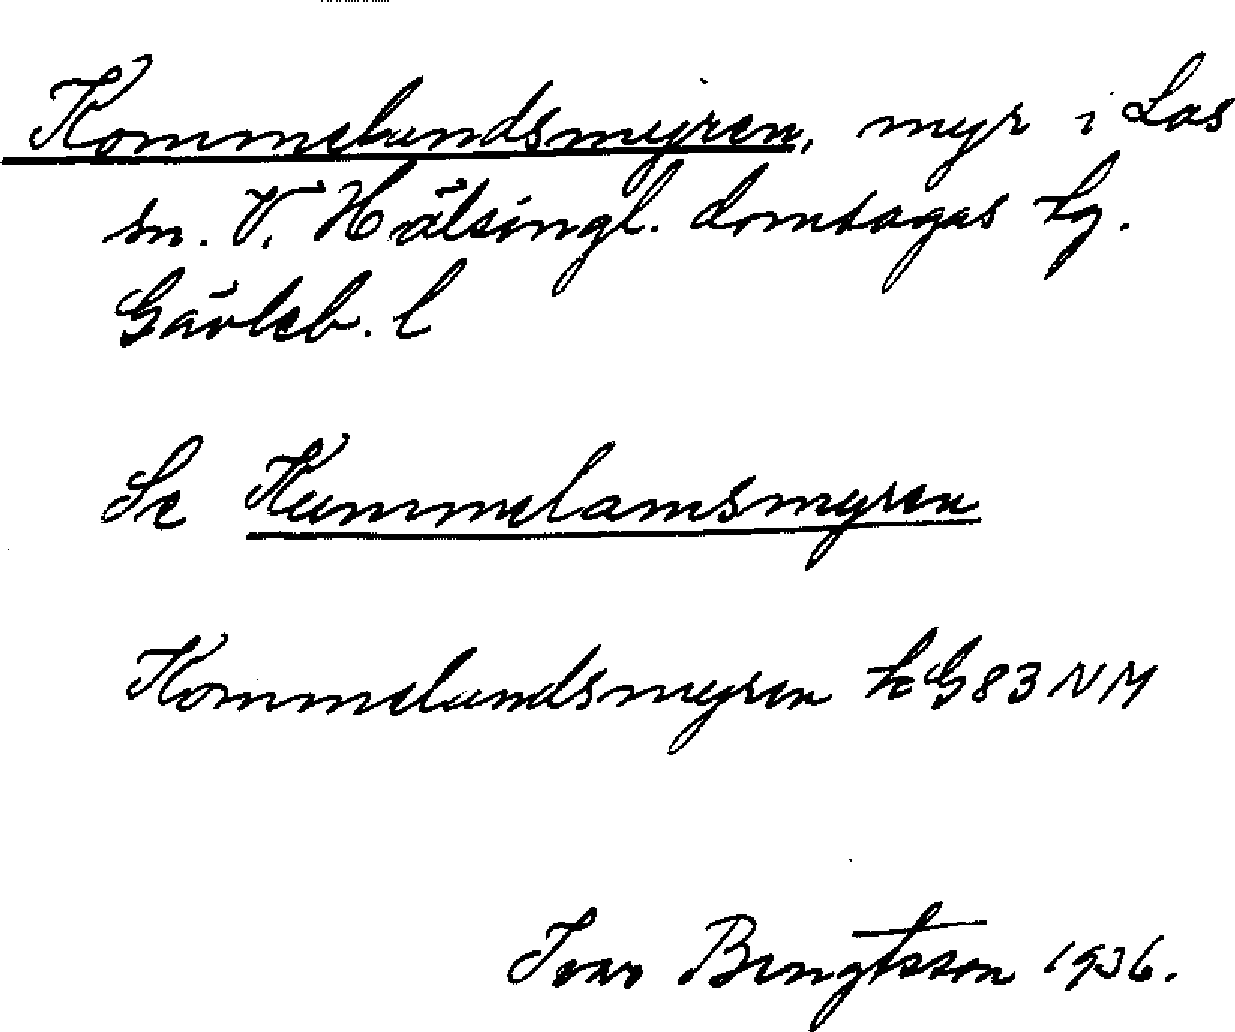 Kommelundsmyren, myr i Los
sn. V. Hälsingl. domsagas tg.
Gävleb. l
Se Kummelamsmyren
Kommelundsmyren k G83 NM
Ivar Bengtsson 1936.